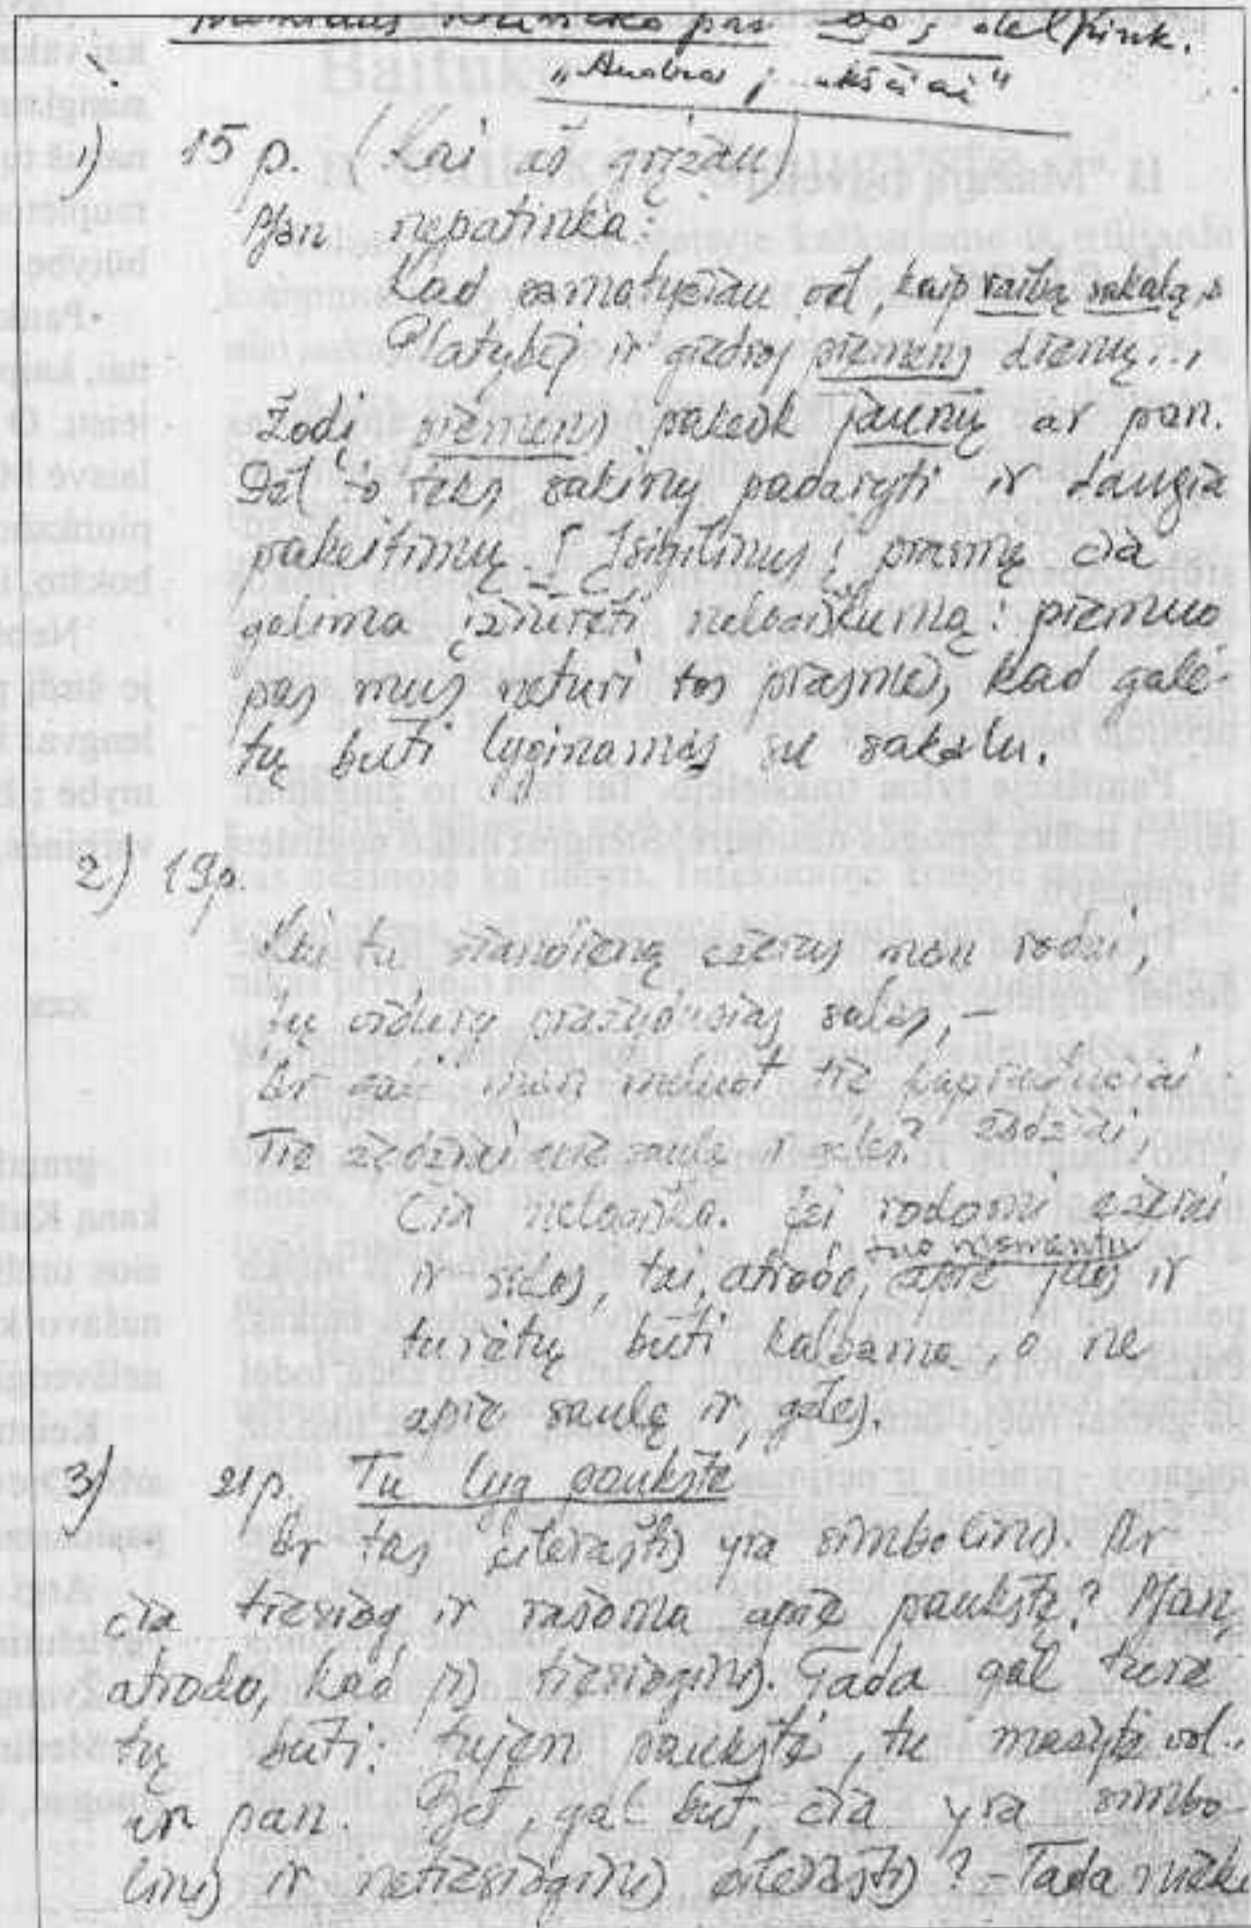 pas dėl rink.
1) 15 p. (Kai aš grįžau)
Man nepatinka:
Kad pamatyčiau vėl, kaip raibą sakalą,
Platybėj ir giedroj piemens dienų...
Žodį piemens pakeisk jaunų ar pan.
Dėl to teks sakiny padaryti ir daugia
pakeitimų. Įsigilinus į prasmę čia
galima įžiūrėti nelogiškumą: piemuo
pas mus neturi tos prasmės, kad galė-
tų būti lyginamas su sakalu.
2) 19p.
Kai tu šiandieną ežerus man rodai,
Jų vidury pražydusias salas, –
Ar tai man
Tie žodžiai apie saulę ir gėles? žodžiai,
Čia nelogiška. Jei rodomi ežerai
ir salos, tai, atrodo, tuo momentu apie juos ir
turėtų būti kalbama, o ne
apie saulę ir gėles.
3) 21p. Tu lyg paukštė
Ar tas eilėraštis yra simbolinis. Ar
čia tiesiog ir rašoma apie paukštę? Man
atrodo, kad jis tiesioginis. Tada gal turė
tų būti: tujen paukštė, tu mažyte vėl..
ir pan. Bet, gal būt, čia yra simbo-
linis ir netiesioginis eilėraštis? – Tada nieko